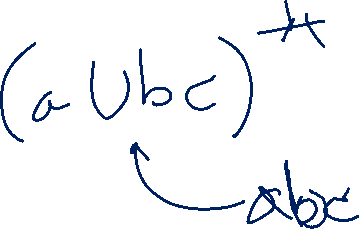 (a ∪ bc)*
abc